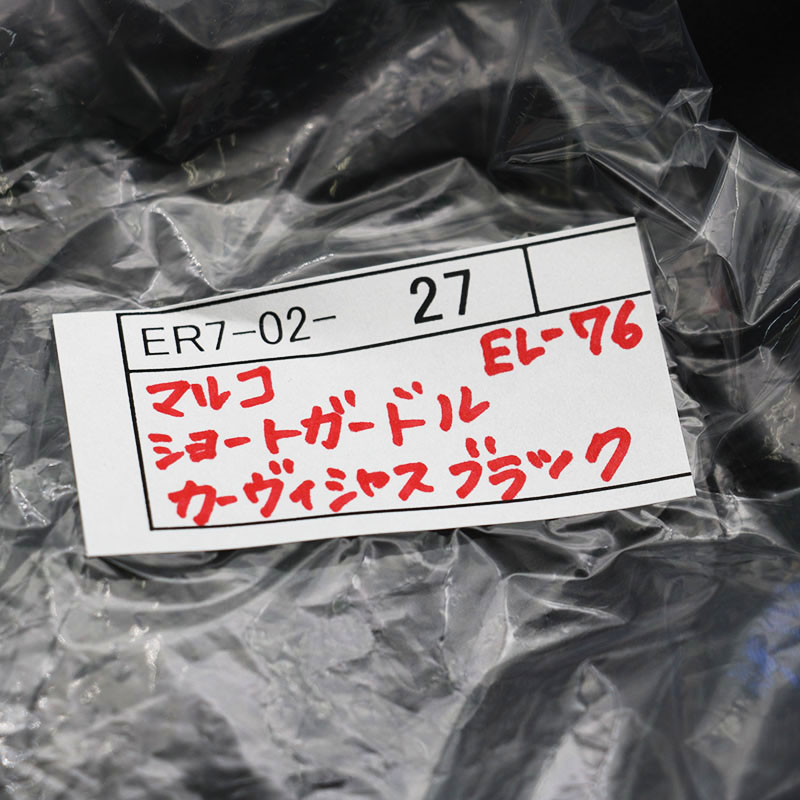 ER7-02- 27
EL-76
マルコ
ショートガードル
カーヴィシャス ブラック